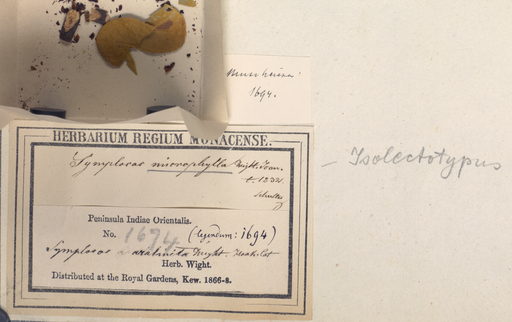 1694.
HERBARIUM REGIUM MONACENSE.
Symplocos microphylla Wight. Icon.
t. 1232.
Peninsula Indiae Orientalis.
No. 1694 (legendum: 1694)
Symplocos Wight.
Herb. Wight.
Distributed at the Royal Gardens, Kew. 1866-8.
– Isolectotypus